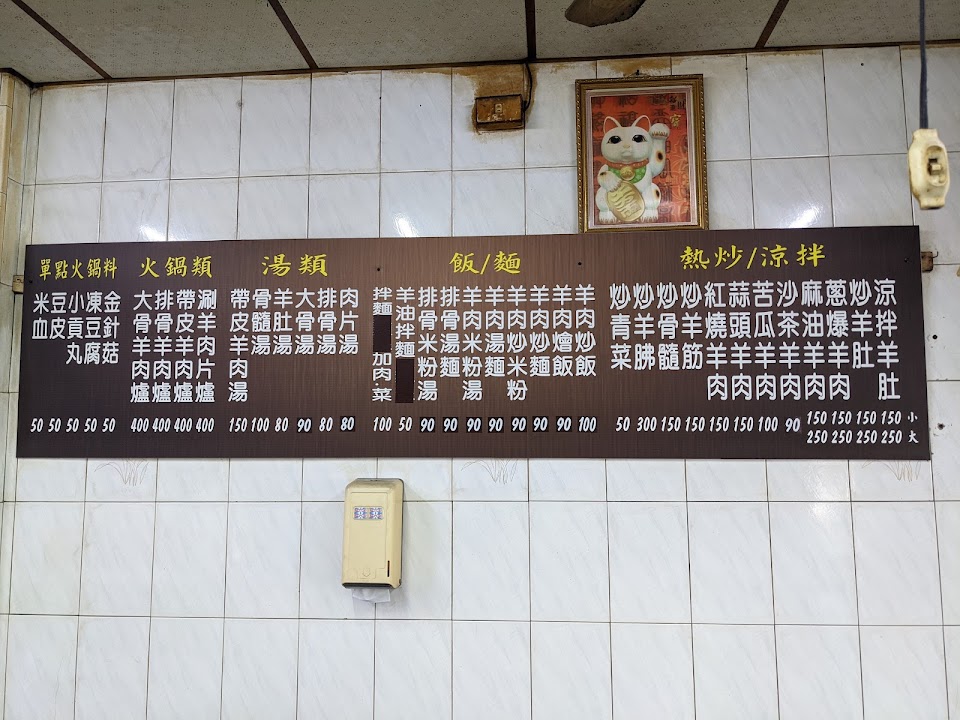 單點火鍋料
米血
豆皮
小貢丸
凍豆腐
金針菇
50 50 50 50 50
火鍋類
大骨羊肉爐
排骨羊肉爐
帶皮羊肉爐
涮羊肉片爐
400 400 400 400
湯類
帶皮羊肉湯
骨髓湯
羊肚湯
大骨湯
排骨湯
肉片湯
150 100 80 90 80 80
飯/麵
拌麵 加肉菜
羊油拌麵
排骨米粉湯
排骨湯麵
羊肉米粉湯
羊肉湯麵
羊肉炒米粉
羊肉炒麵
羊肉燴飯
羊肉炒飯
100 50 90 90 90 90 90 90 90 100
熱炒/涼拌
炒青菜
炒羊胇
炒骨髓
炒羊筋
紅燒羊肉
蒜頭羊肉
苦瓜羊肉
沙茶羊肉
麻油羊肉
蔥爆羊肉
炒羊肚
涼拌羊肚
50 300 150 150 150 150 100 90
150 150 150 150 小
250 250 250 250 大